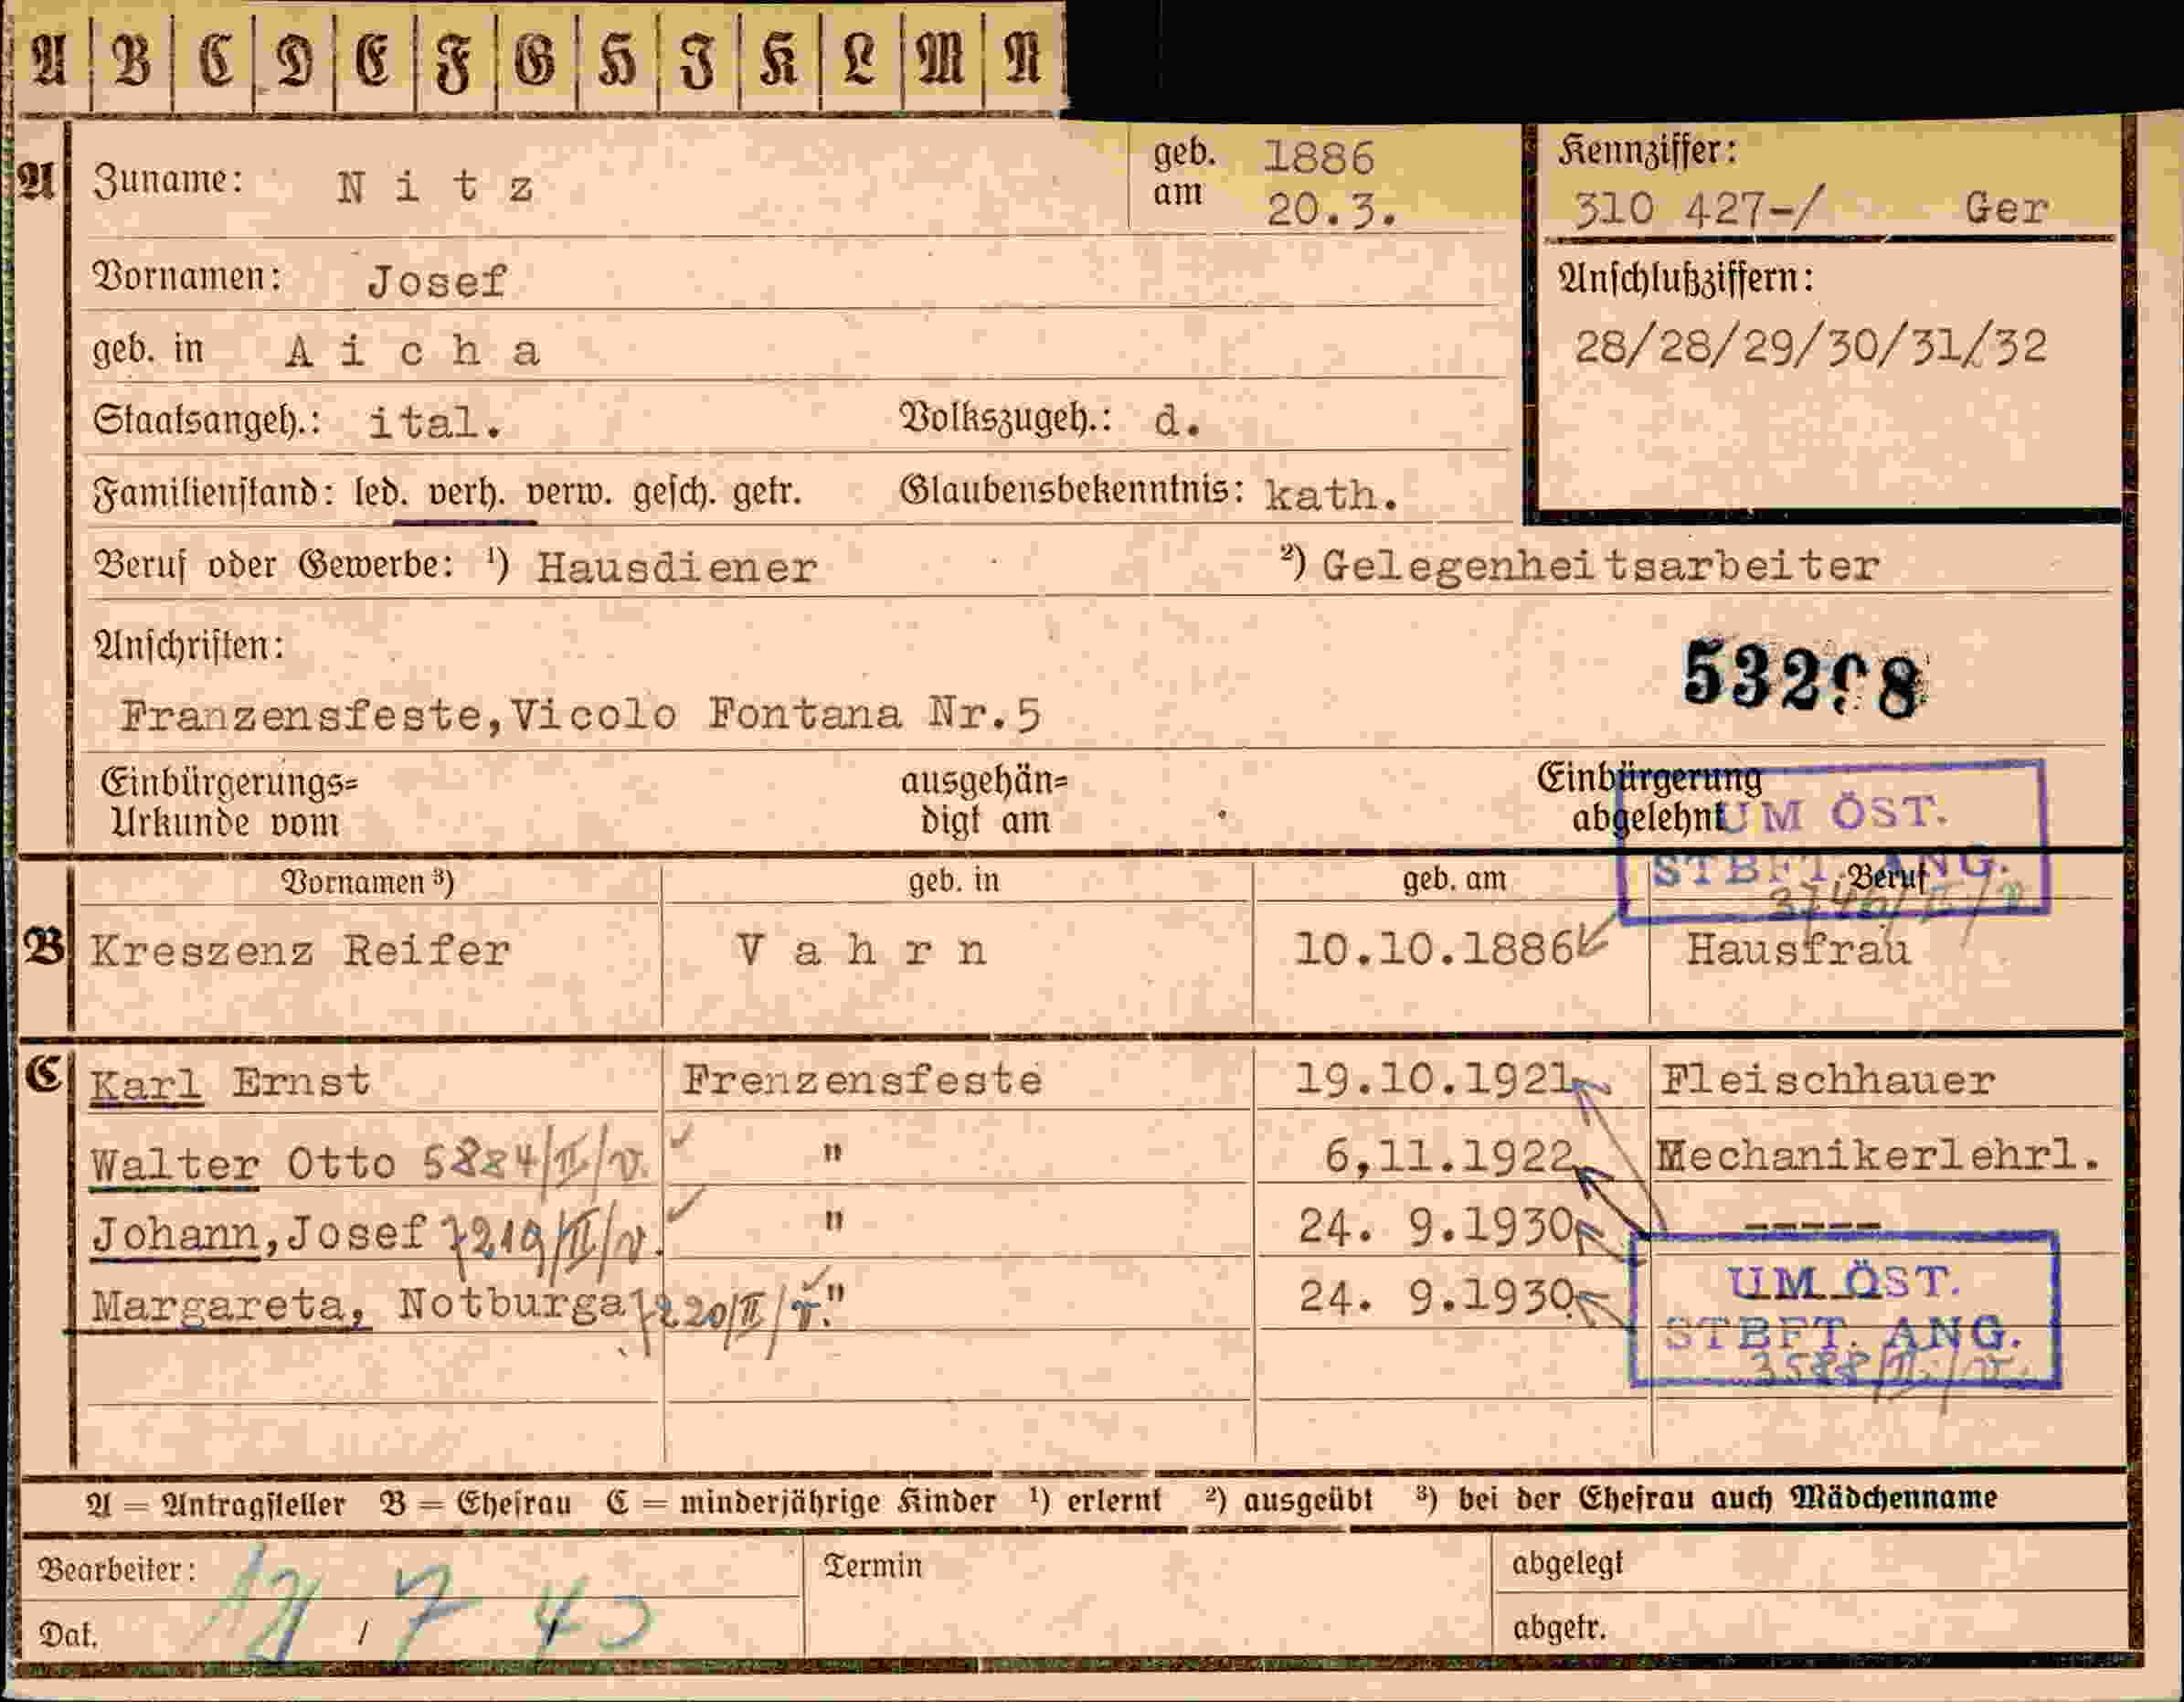 A B C D E F G H I K L M N
A Zuname: Nitz geb. am 1886 20.3. Kennziffer: 310 427-/ Ger
Vornamen: Josef Anschlußziffern:
geb. in Aicha 28/28/29/30/31/32
Staatsangeh.: ital. Volkszugeh.: d.
Familienstand: led. verh. verw. gesch. getr. Glaubensbekenntnis: kath.
Beruf oder Gewerbe: 1) Hausdiener 2) Gelegenheitsarbeiter
Anschriften:
Franzensfeste,Vicolo Fontana Nr.5
Einbürgerungs= ausgehän= Einbürgerung
Urkunde vom digt am abgelehnt
UM ÖST.
STBFT. ANG.
Vornamen 3) geb. in geb. am Beruf
B Kreszenz Reifer Vahrn 10.10.1886 Hausfrau
C Karl Ernst Frenzensfeste 19.10.1921 Fleischhauer
Walter Otto 5884/II/v. " 6,11.1922 Mechanikerlehrl.
Johann,Josef 7219/II/v. " 24. 9.1930 -----
Margareta, Notburga 7220/II/v. " 24. 9.1930
UM ÖST.
STBFT. ANG.
3588/II./v.
A = Antragsteller B = Ehefrau C = minderjährige Kinder 1) erlernt 2) ausgeübt 3) bei der Ehefrau auch Mädchenname
Bearbeiter: Termin abgelegt
Dat. / 7 40 abgetr.